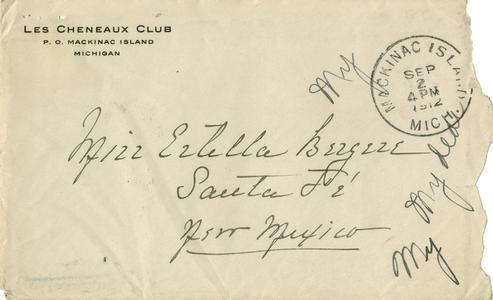 LES CHENEAUX CLUB
P. O. MACKINAC ISLAND
MICHIGAN
MACKINAC ISLAND
SEP
2
4 PM
1912
MICH.
My
Miss Estella Bergere
Santa Fé
New Mexico
My dear
My